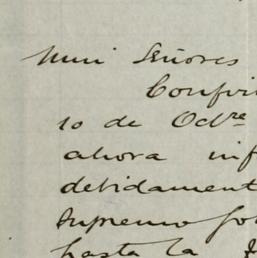 Muy Señores
Confir
10 de Octre
ahora inf
debidament
Supremo Go
hasta la